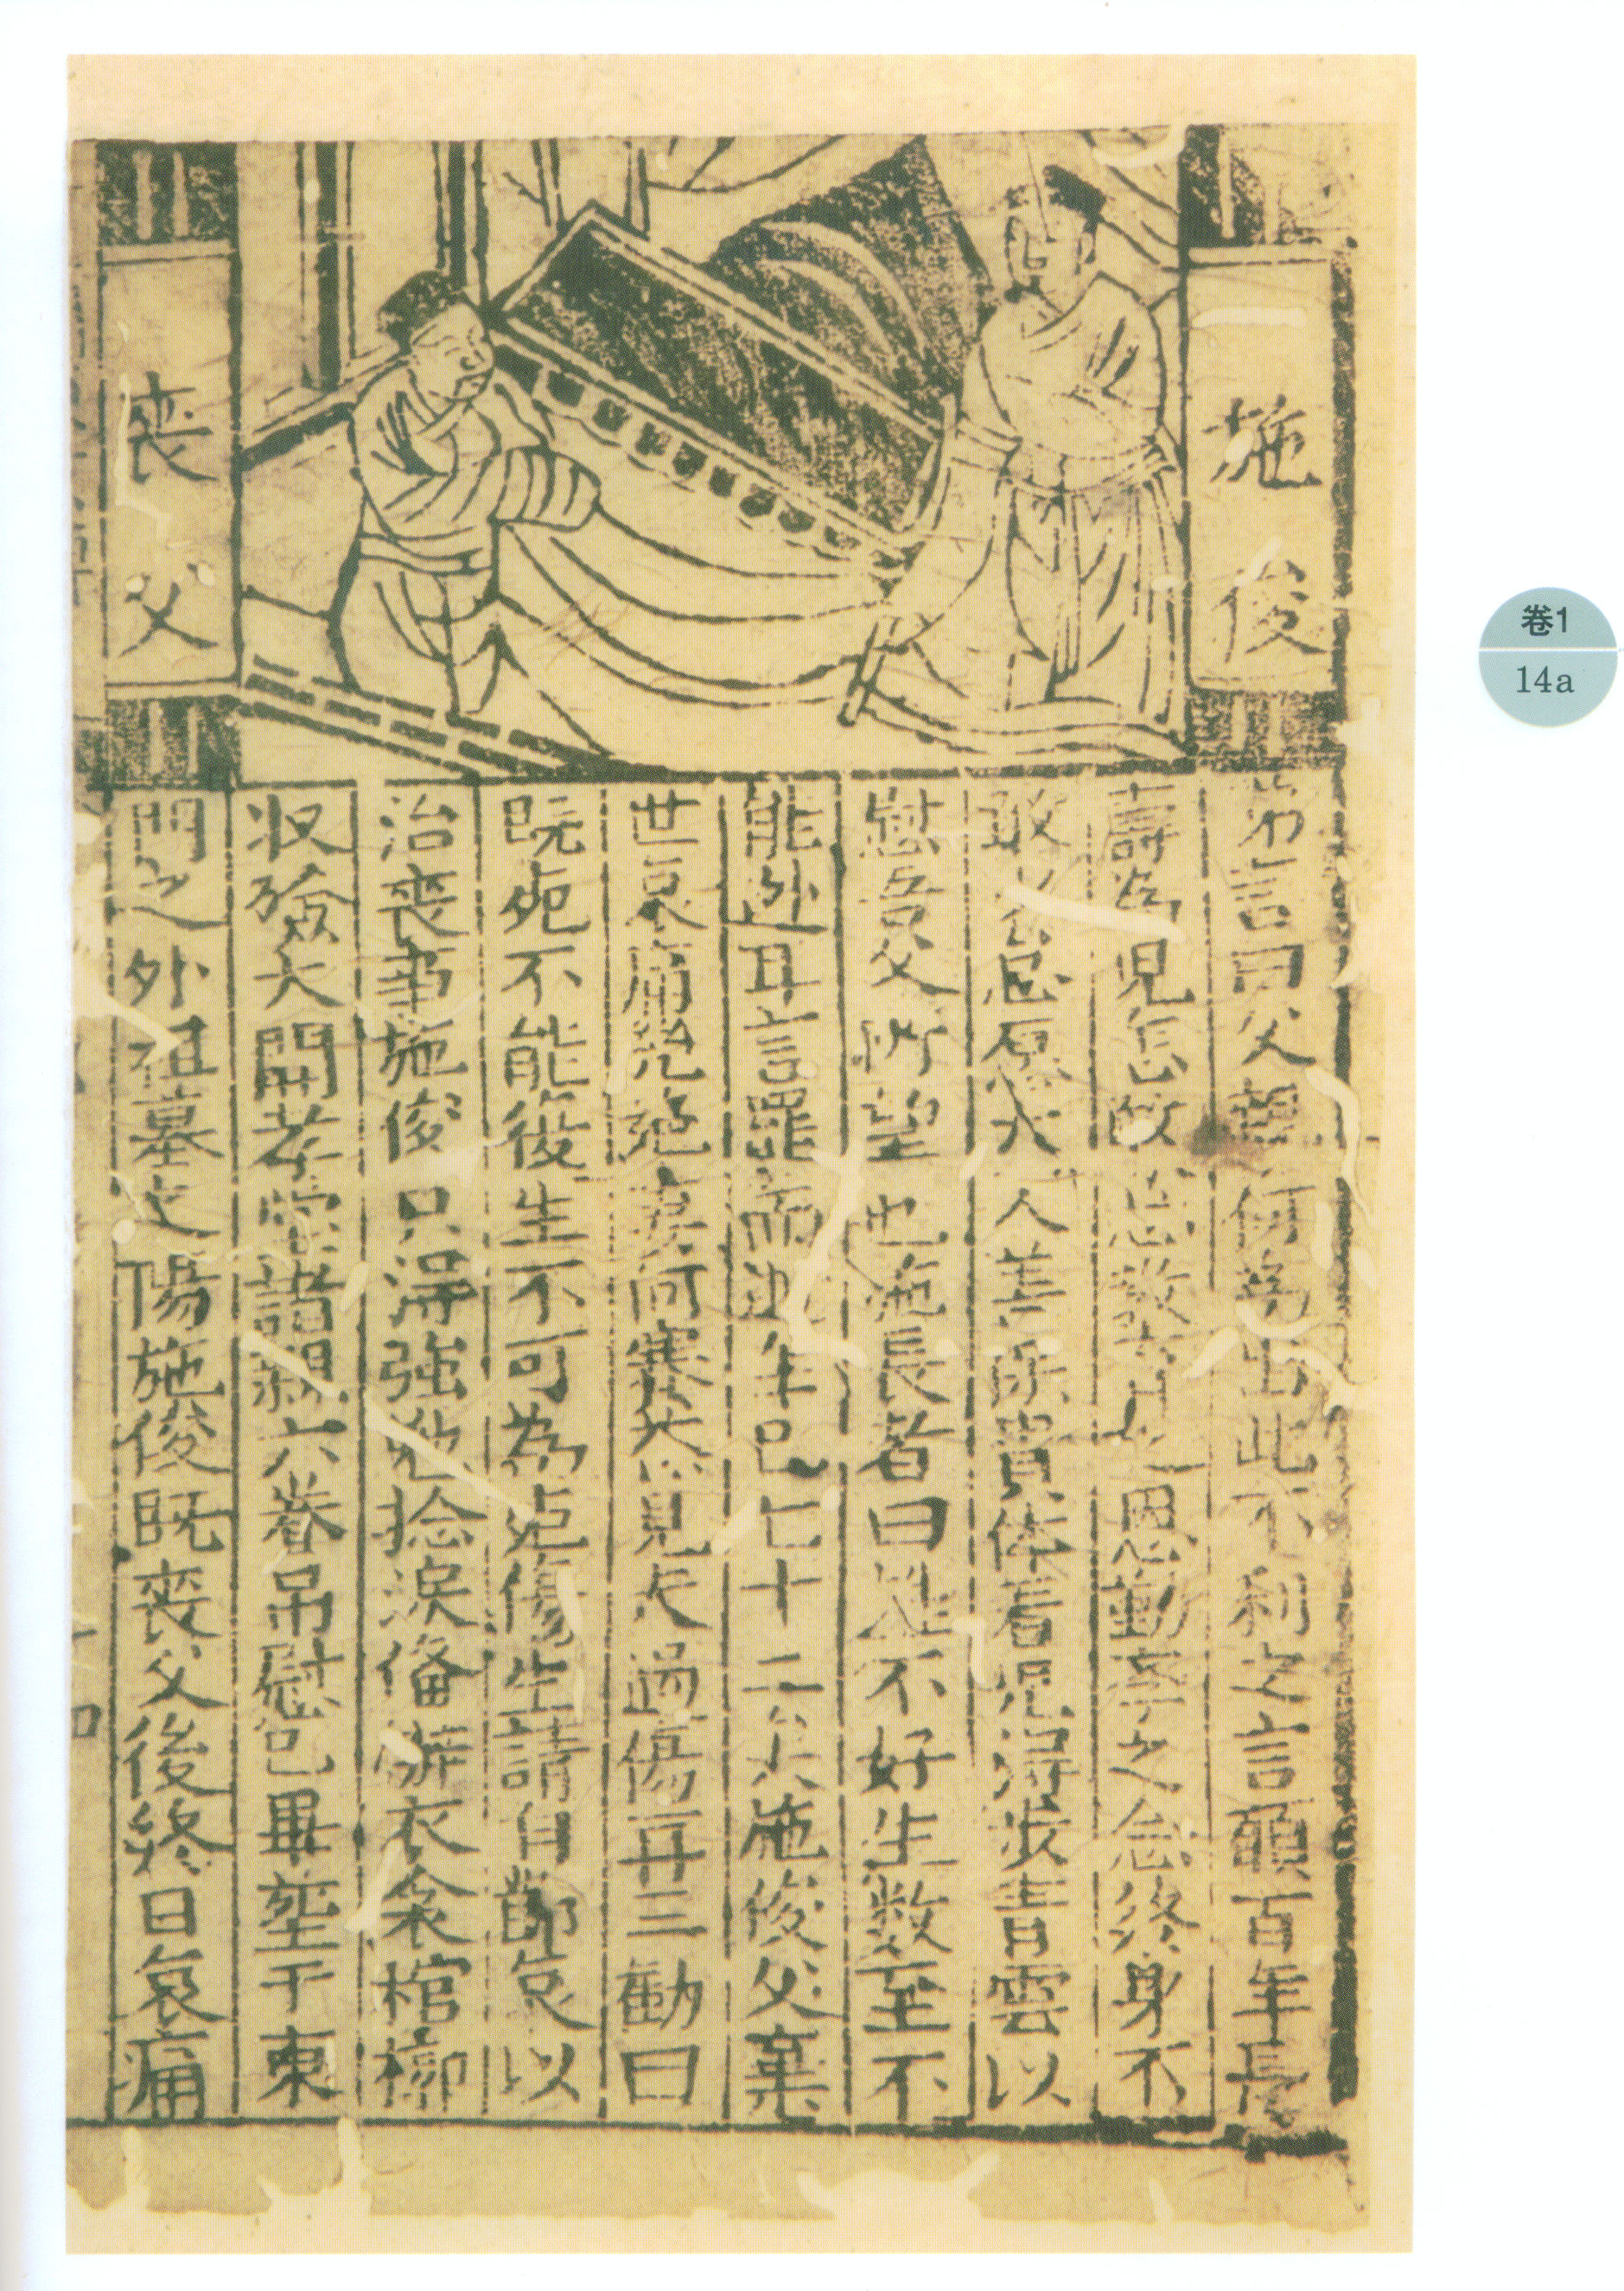 施俊
喪父
弟言曰父親何為出此不利之言願百年長
壽為児怎敢忘教育之恩勤字之念終身不
敢忘愿大人善保貴体着児得步青雲以
慰吾父所望也施長者曰汝不好生数至不
能逃耳言罷而逝年已七十二火施俊父棄
世哀痛幾絶妻何賽英見夫過傷再三勸曰
既死不能復生不可為死傷生請自節哀以
治喪事施俊只得強起捻淚俻辦衣衾棺槨
収殮大開孝堂諸親六眷吊慰已畢塟于東
門之外祖墓之傷施俊既喪父後終日哀痛
卷1
14a